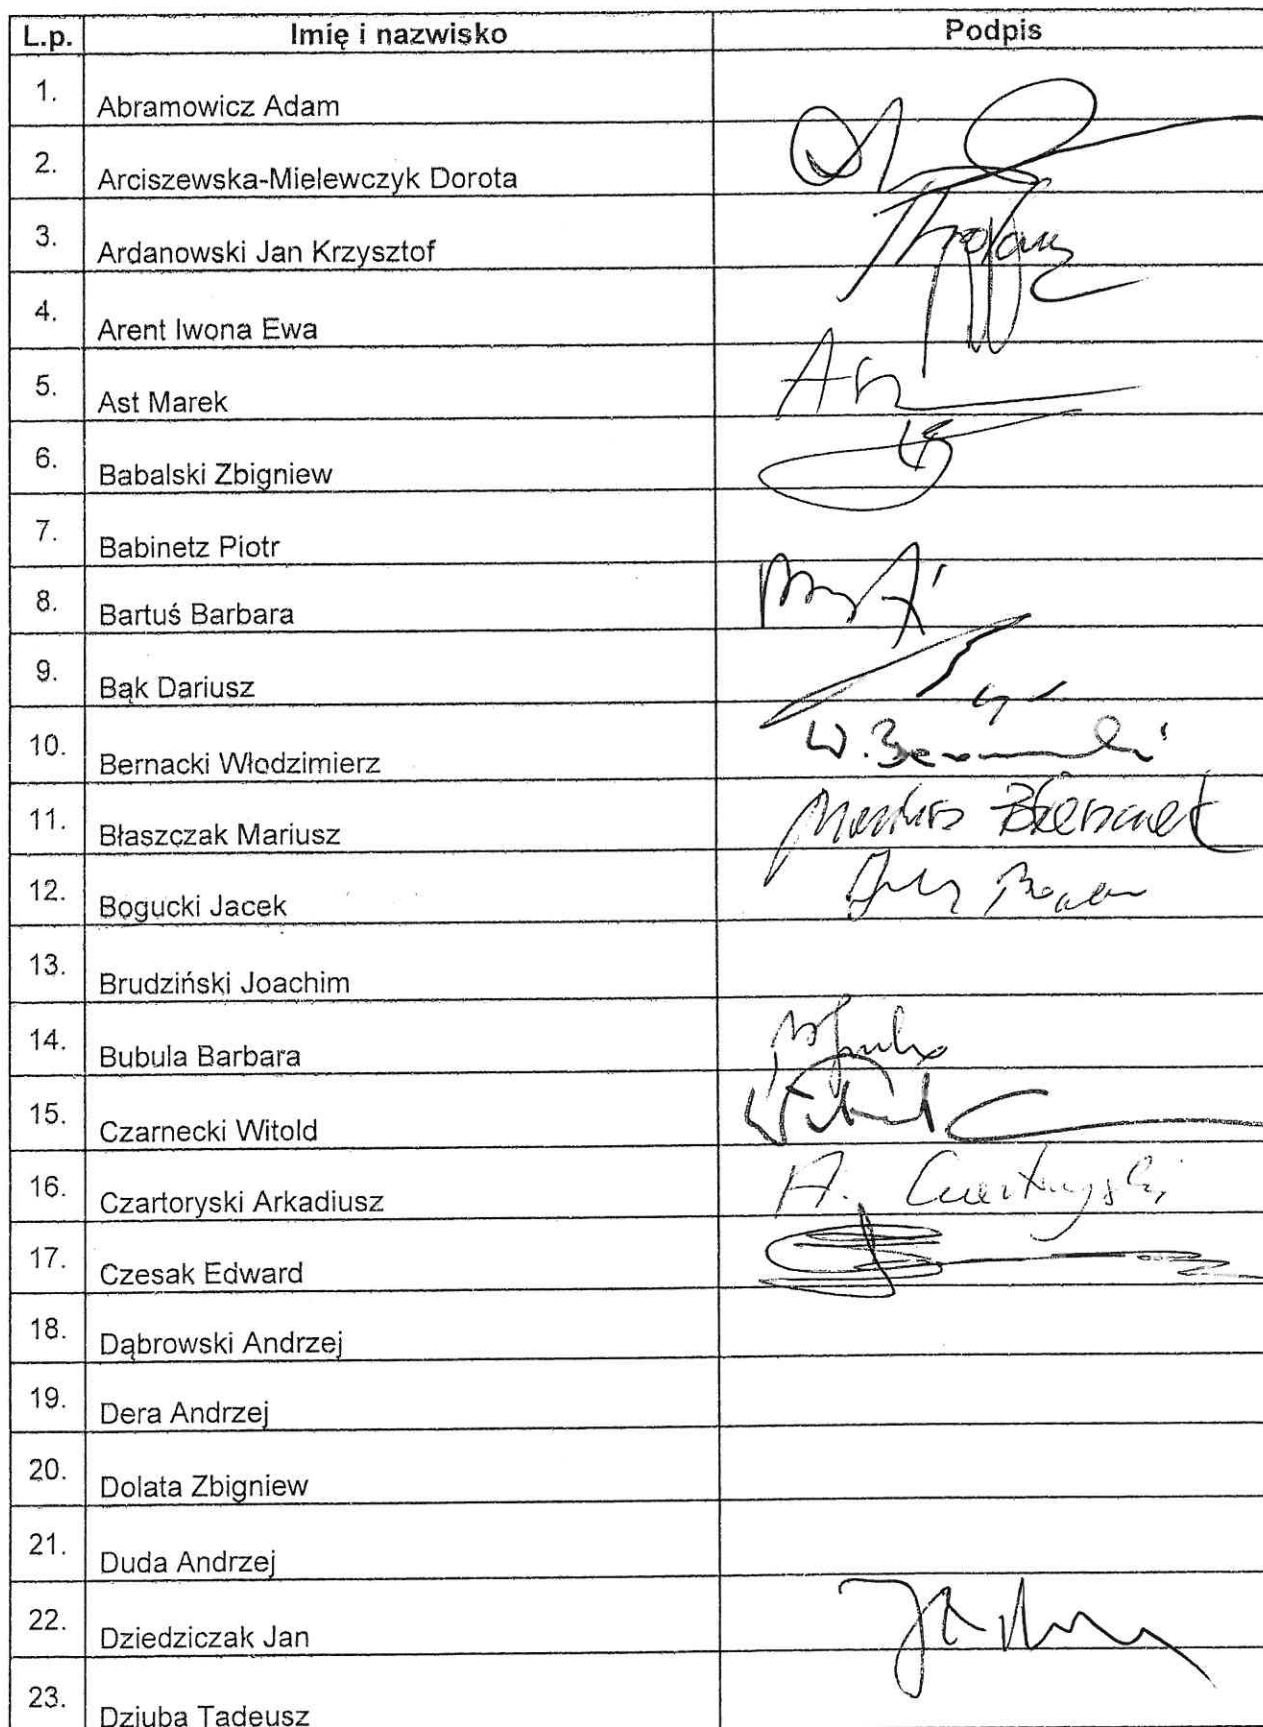 L.p. Imię i nazwisko Podpis
1. Abramowicz Adam
2. Arciszewska-Mielewczyk Dorota
3. Ardanowski Jan Krzysztof
4. Arent Iwona Ewa
5. Ast Marek
6. Babalski Zbigniew
7. Babinetz Piotr
8. Bartuś Barbara
9. Bąk Dariusz
10. Bernacki Włodzimierz W.
11. Błaszczak Mariusz Mariusz Błaszczak
12. Bogucki Jacek
13. Brudziński Joachim
14. Bubula Barbara
15. Czarnecki Witold Witold
16. Czartoryski Arkadiusz A. Czartoryski
17. Czesak Edward
18. Dąbrowski Andrzej
19. Dera Andrzej
20. Dolata Zbigniew
21. Duda Andrzej
22. Dziedziczak Jan
23. Dziuba Tadeusz